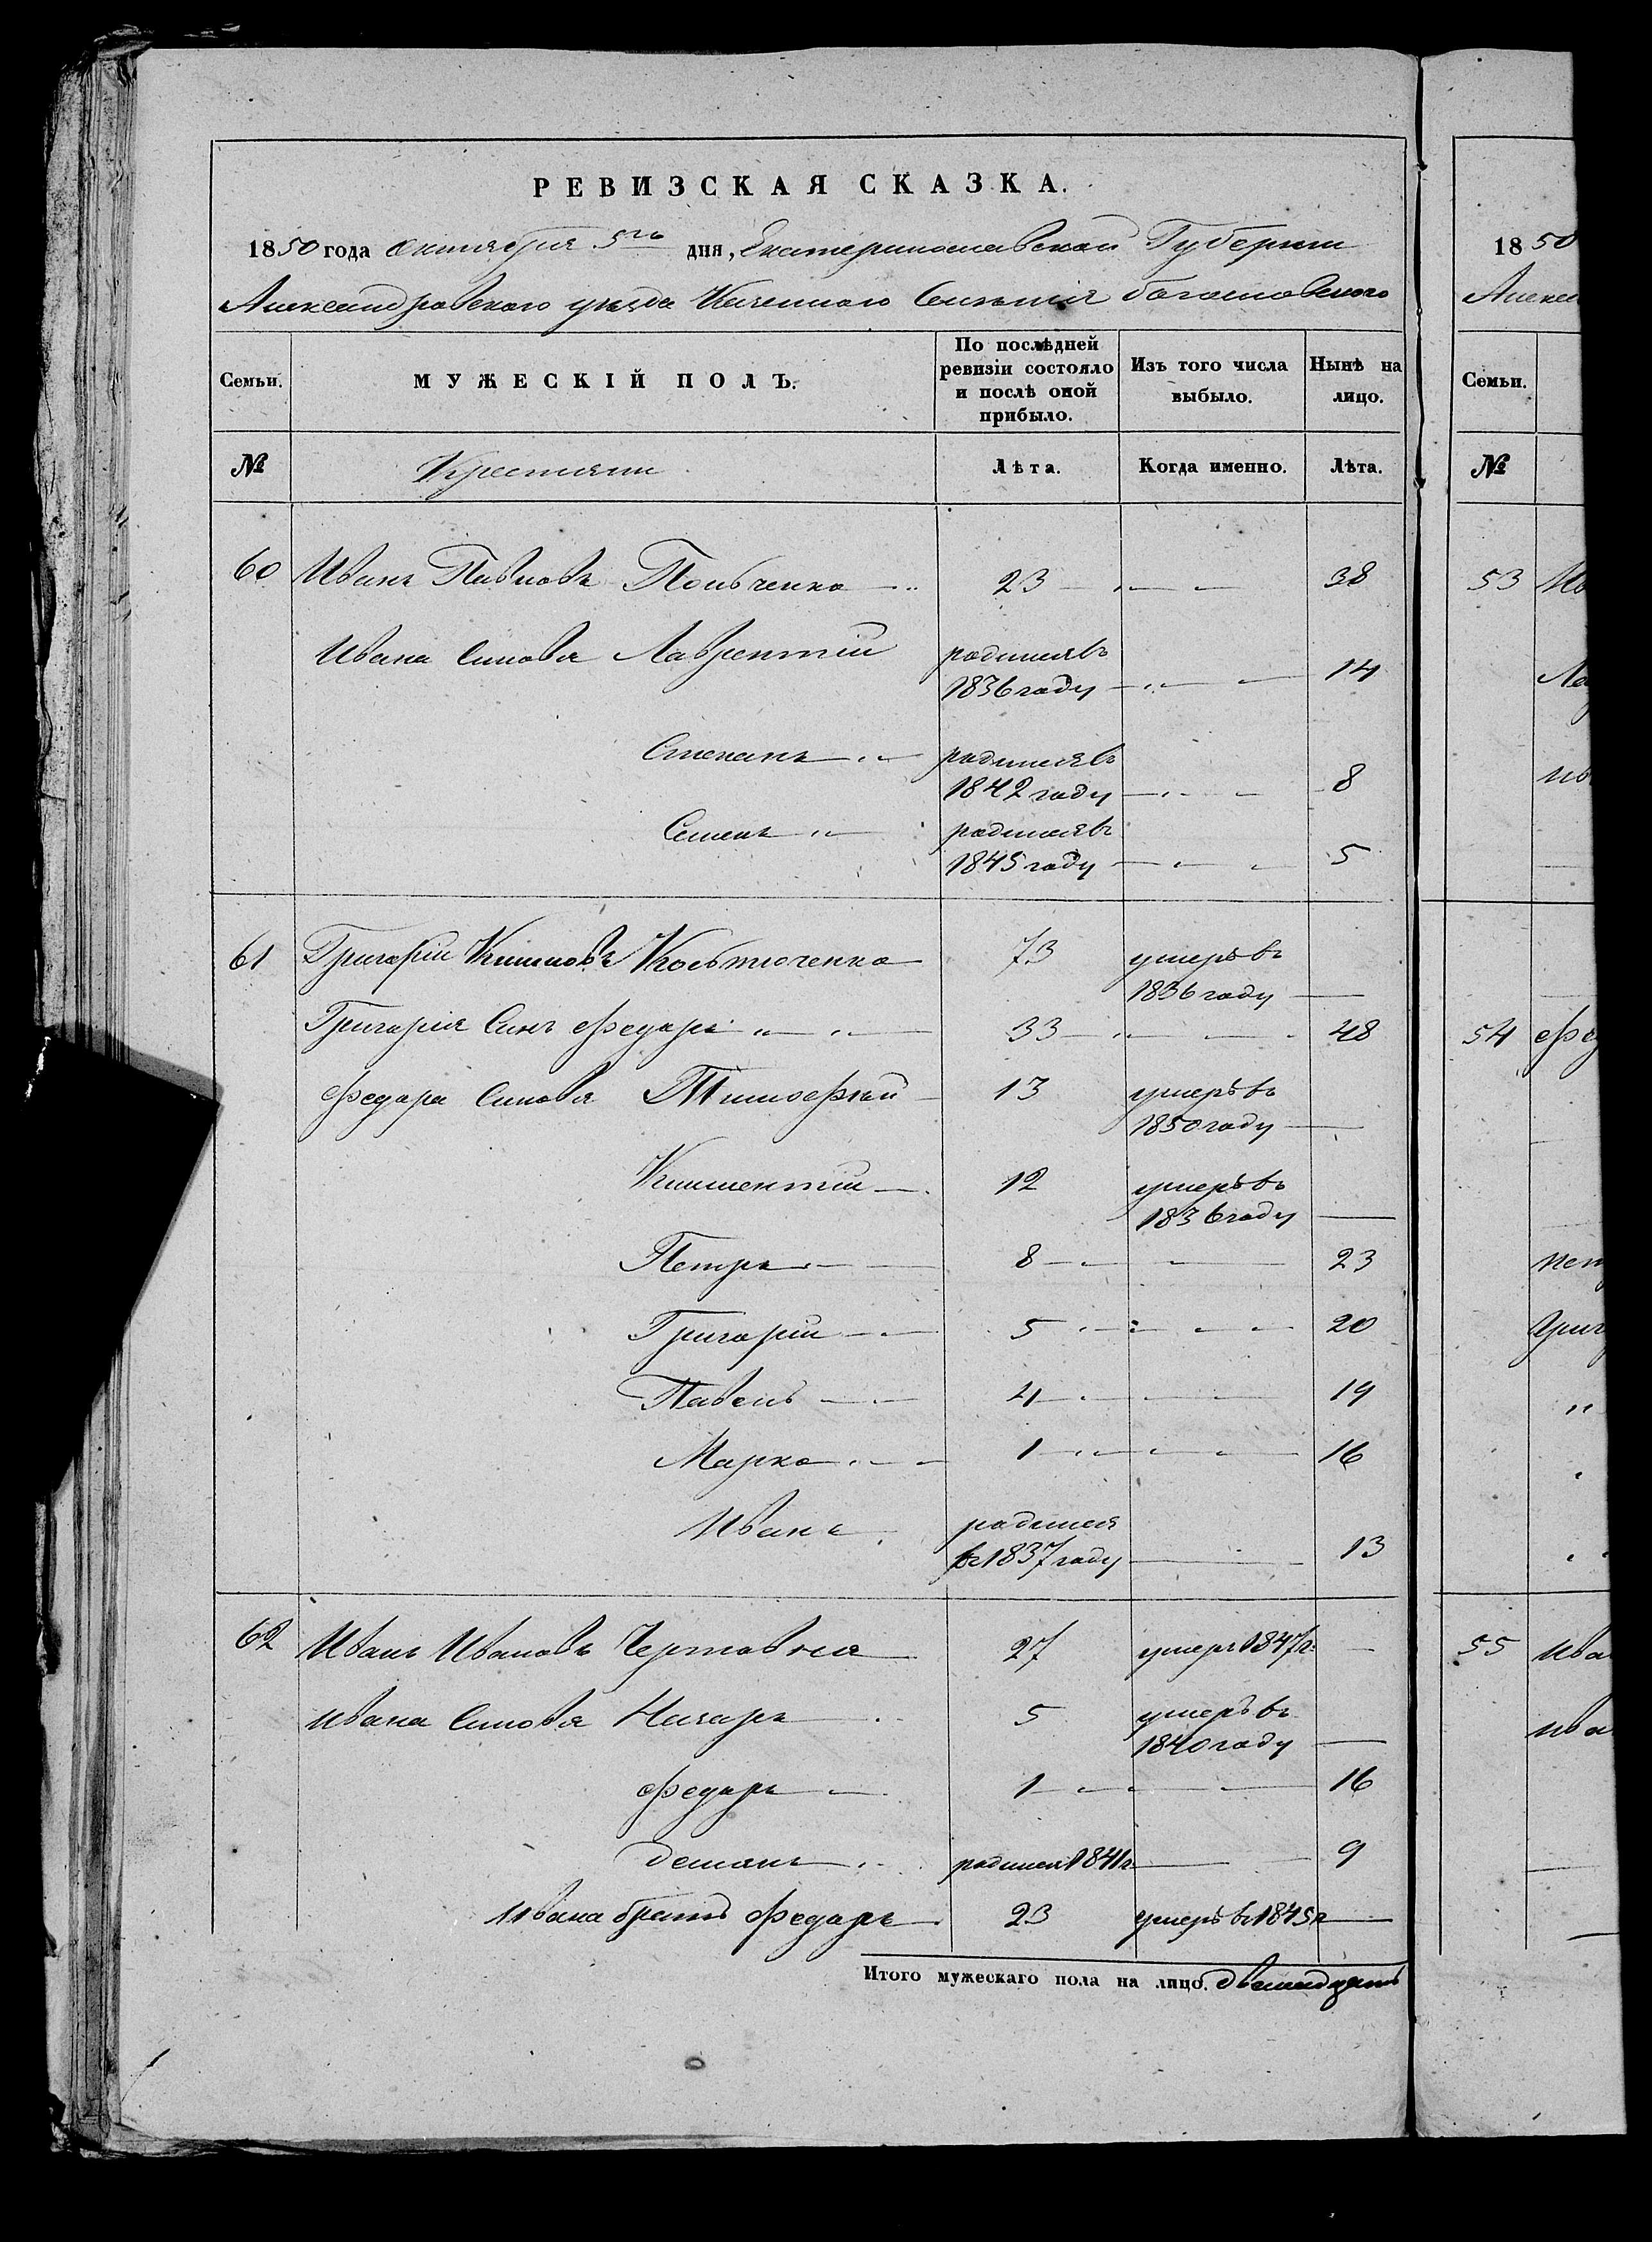 РЕВИЗСКАЯ СКАЗКА.
1850 года октября 5го дня, Екатеринославской Губернии
Александровского уезда Казенного Селенія богословского
Семьи. МУЖЕСКІЙ ПОЛЪ. По послѣдней ревизіи состояло и послѣ оной прибыло. Изъ того числа выбыло. Нынѣ на лицо.
№ Крестяни Лѣта. Когда именно. Лѣта.
60 Иванъ Павловъ 23 38
Ивана Синовя Лаврентій родился въ 1836 году 14
Степанъ родился въ 1842 году 8
Семенъ родился въ 1845 году 5
61 Григорій Климовъ Костюченко 73 умеръ въ 1836 году
Григорія Синъ Федаръ 33 48
Федара Синовя Тимофей 13 умеръ въ 1850 году
Климентій 12 умеръ въ 1836 году
Петръ 8 23
Григорій 5 20
Павелъ 4 19
Марко 1 16
Иванъ родился въ 1837 году 13
62 Иванъ Ивановъ 27 умеръ 1847 г.
Ивана Синовя Назаръ 5 умеръ въ 1840 году
Федаръ 1 16
Демянъ родился 1841 г. 9
Ивана братъ Федаръ 23 умеръ въ 1845 г
Итого мужескаго пола на лицо. двенадцать
1850
Алекса
Семьи.
№
53 Ив
Ла
ив
54 Фед
пет
Григ
55 ива
ива